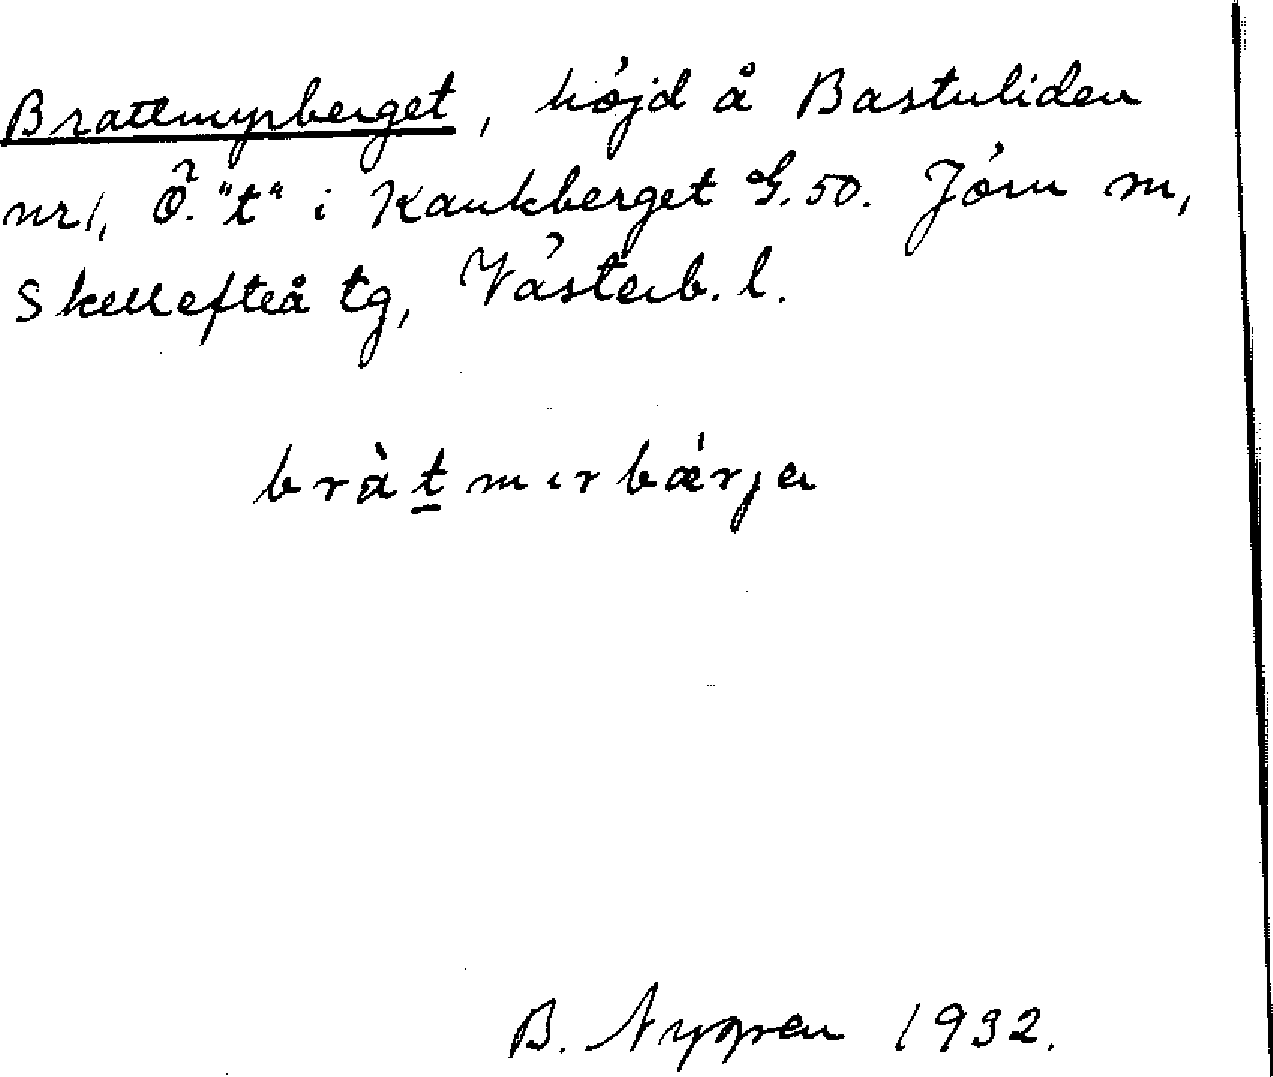 Brattmyrberget, höjd å Bastuliden
nr 1, Ö. "t" i Kankberget G. 50. Jörn sn,
Skellefteå tg, Västerb. l.
bràtmɩrbǽrjɐ
B. Nygren 1932.